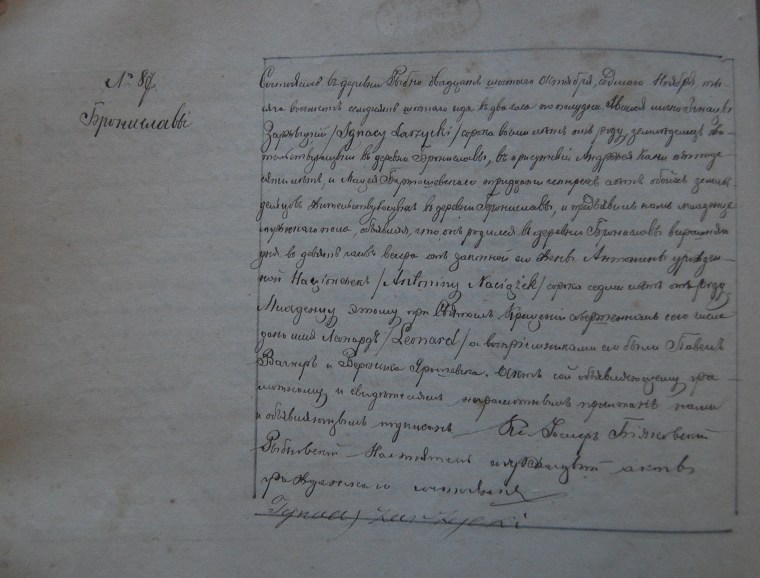 № 87
Брониславы
Состоялось въ деревни Рыбно двадцать шостого Октября, седмого Ноября, ты-
сяча восемьсотъ семдесятъ шостого года въ два часа по полудни. Явился лично Игнацъ
Заржицкiй /Ignacy Zarzycki/ сорока восми летъ отъ роду, земледелецъ жи-
тельствующiй въ деревни Брониславы, въ присутствiи Андрея пяти-
десяти летъ, и Мацея Бартошевского тридцати четырехъ летъ обоихъ земле-
дельцовъ жительствующихъ въ деревни Брониславы, и предъявилъ намъ младенца
мужеского пола, объявляя, что онъ родился въ деревни Брониславы вчерашняго
дня въ девять часовъ вечера отъ законной его жены Антонины урожден-
ной Нацiонжекъ /Antoniny Naciążek/ сорока седми летъ отъ роду
Младенцу этому при Святомъ Крещенiи совершенномъ сего числа
дано имя Леонардъ /Leonard/ а воспрiемниками его были Павелъ
Вагнеръ и Вероника Актъ сей объявляющему гра-
мотному и свидетелямъ неграмотнымъ прочитанъ нами
и объявляющимъ подписанъ Кс.
Рыбновскiй Настоятель содержащiй акты
гражданского состоянiя
Ignacy Zarzycki